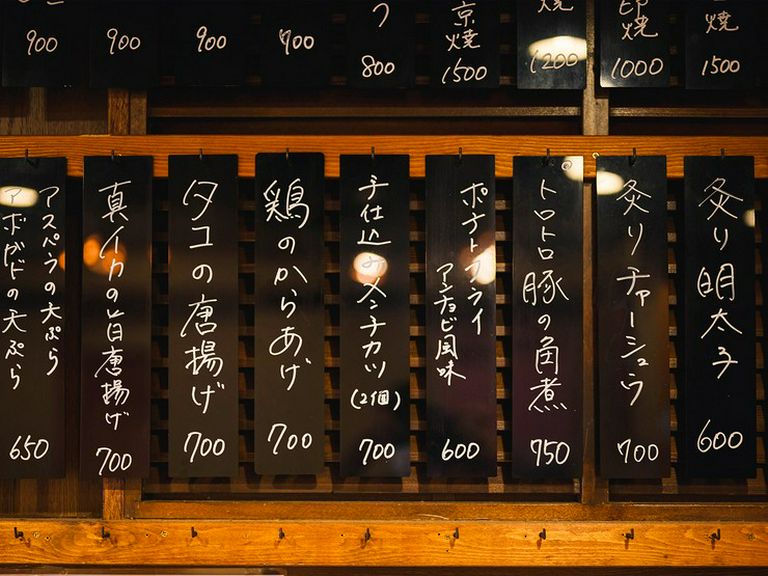 900
900
900
700
つ
800
京
焼
1500
焼
1200
印
焼
1000
焼
1500
炙り明太子
600
炙りチャーシュウ
700
トロトロ豚の角煮
750
ポテトフライ
アンチョビ風味
600
手仕込みメンチカツ
(2個)
700
鶏のからあげ
700
タコの唐揚げ
700
真イカの旨唐揚げ
700
アスパラの天ぷら
アボガドの天ぷら
650